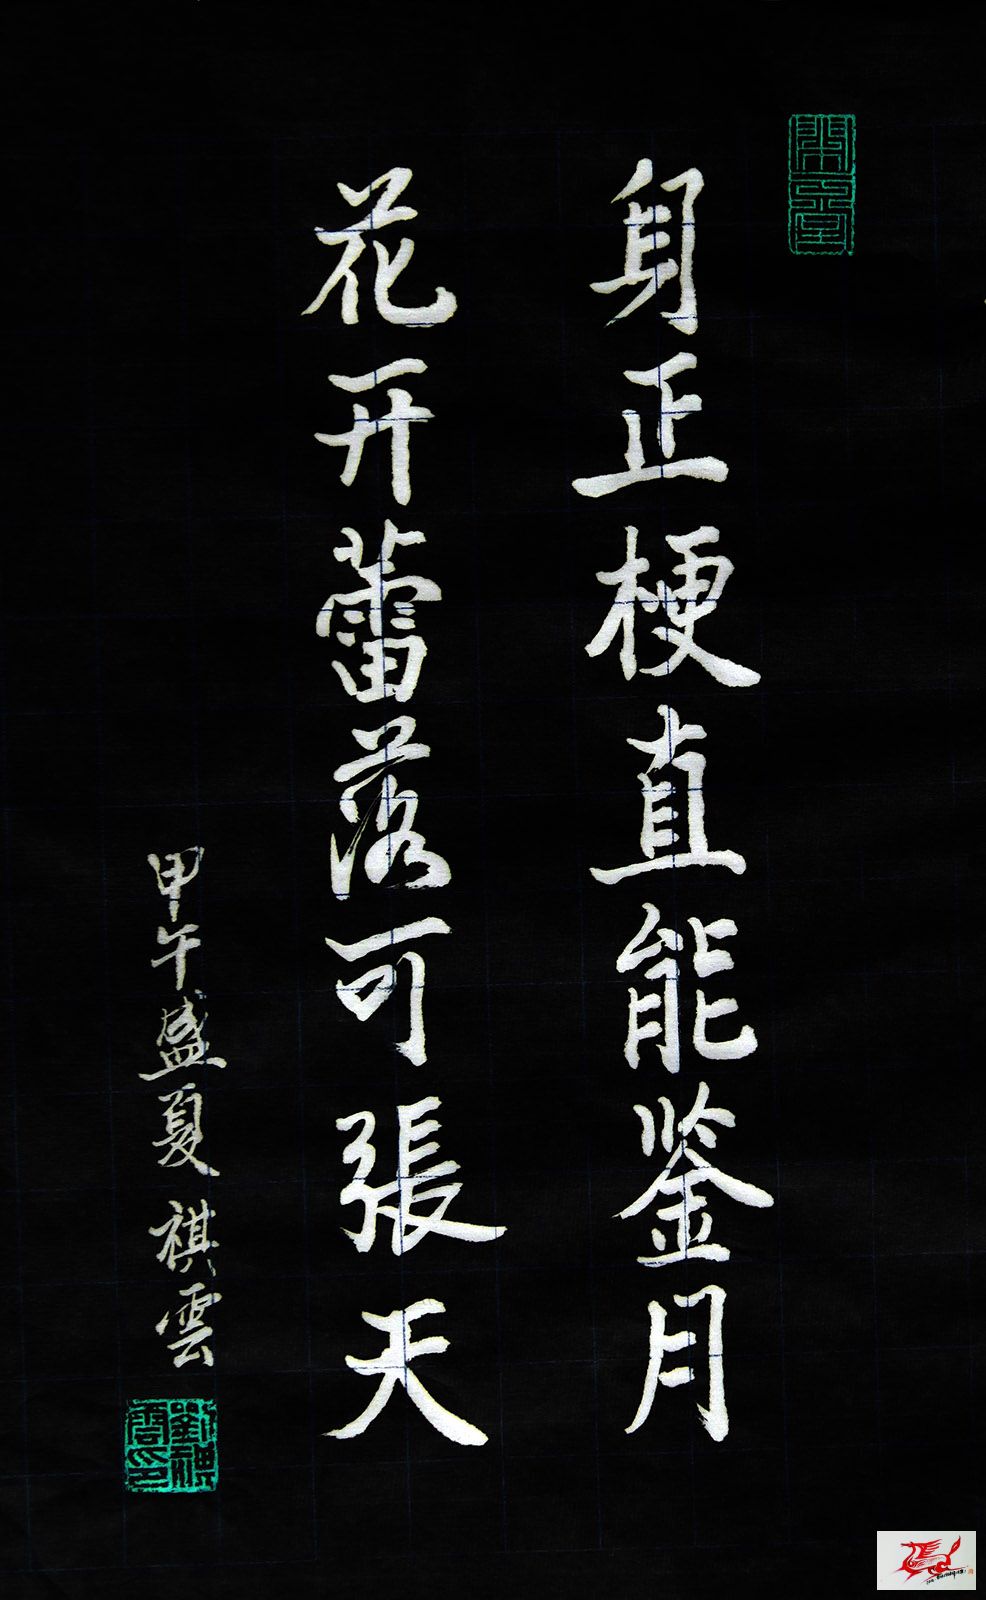 身正梗直能鉴月
花开蕾落可張天
甲午盛夏 祺雲